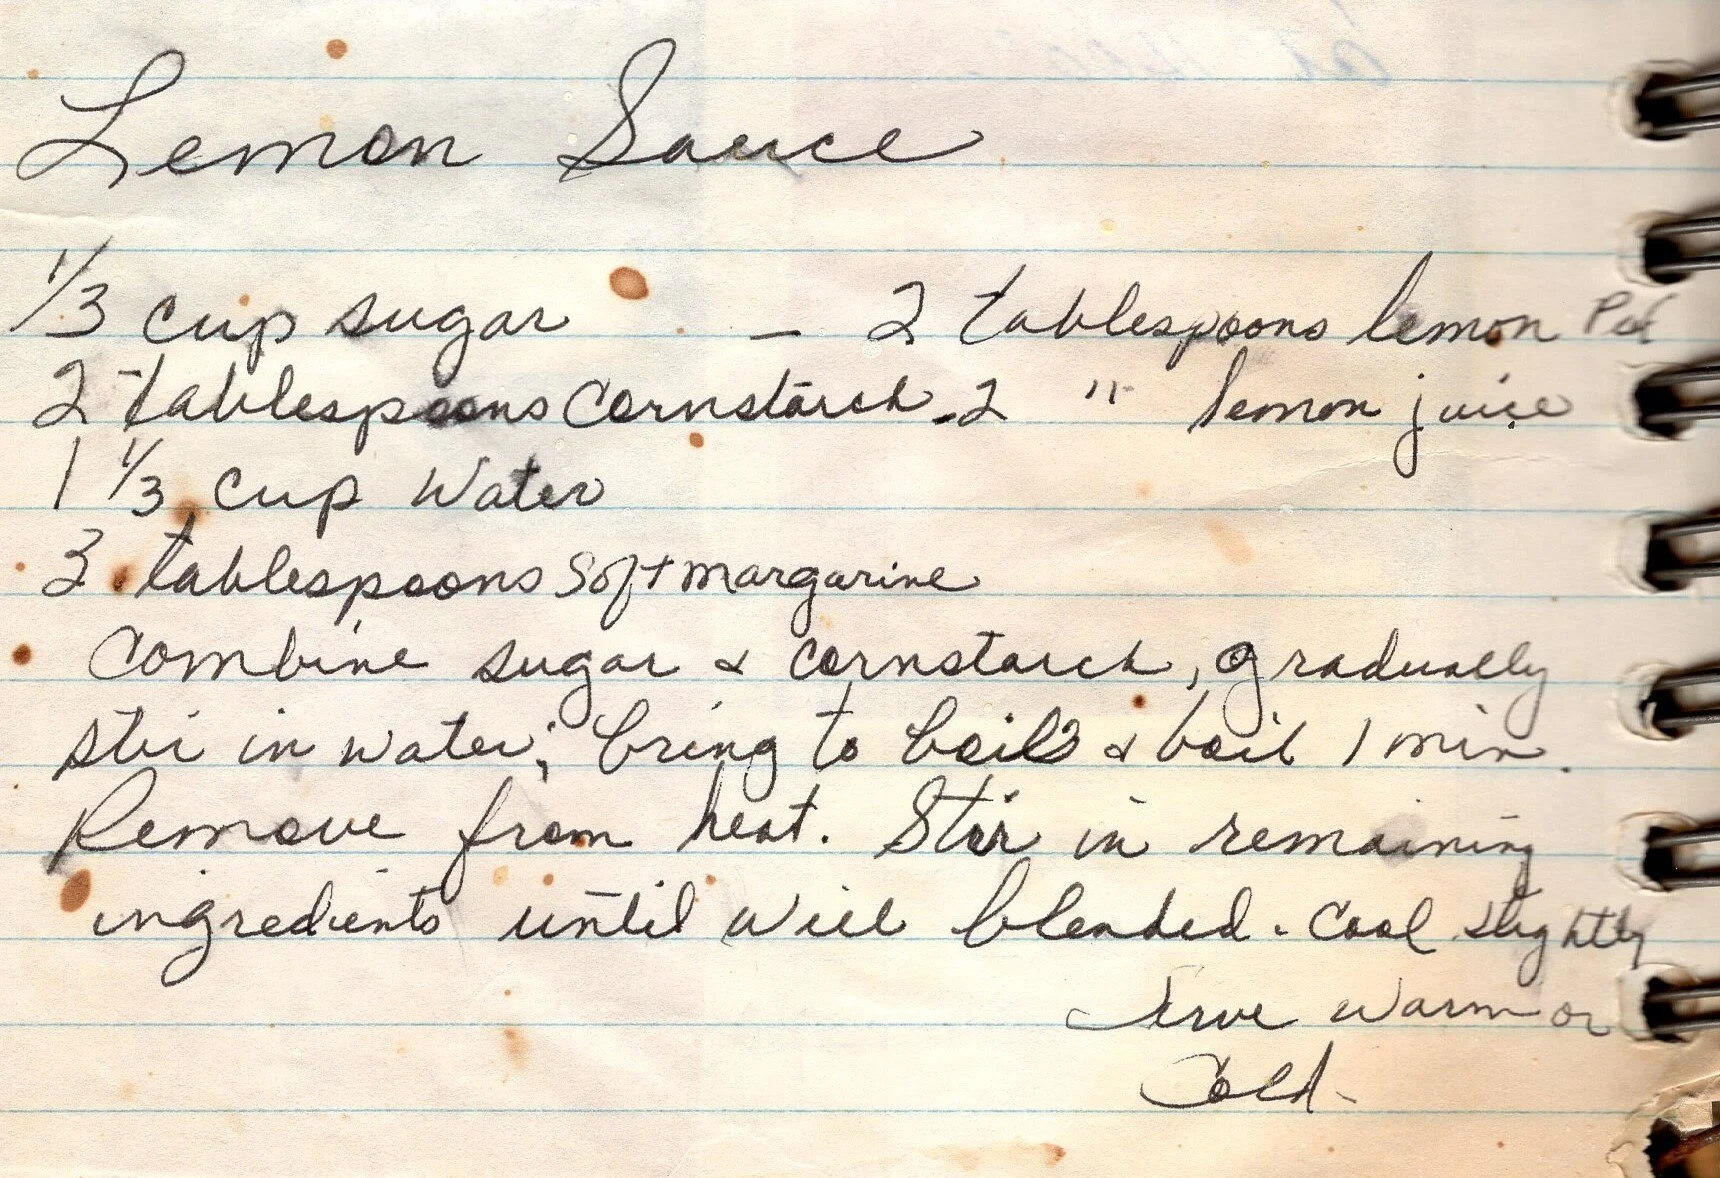 Lemon Sauce
1/3 cup sugar - 2 tablespoons lemon Peel
2 tablespoons Cornstarch - 2 " lemon juice
1 1/3 cup Water
3 tablespoons soft margarine
Combine sugar & cornstarch, gradually
stir in water; bring to boil & boil 1 min.
Remove from heat. Stir in remaining
ingredients until well blended. Cool slightly
Serve warm or
Cold.